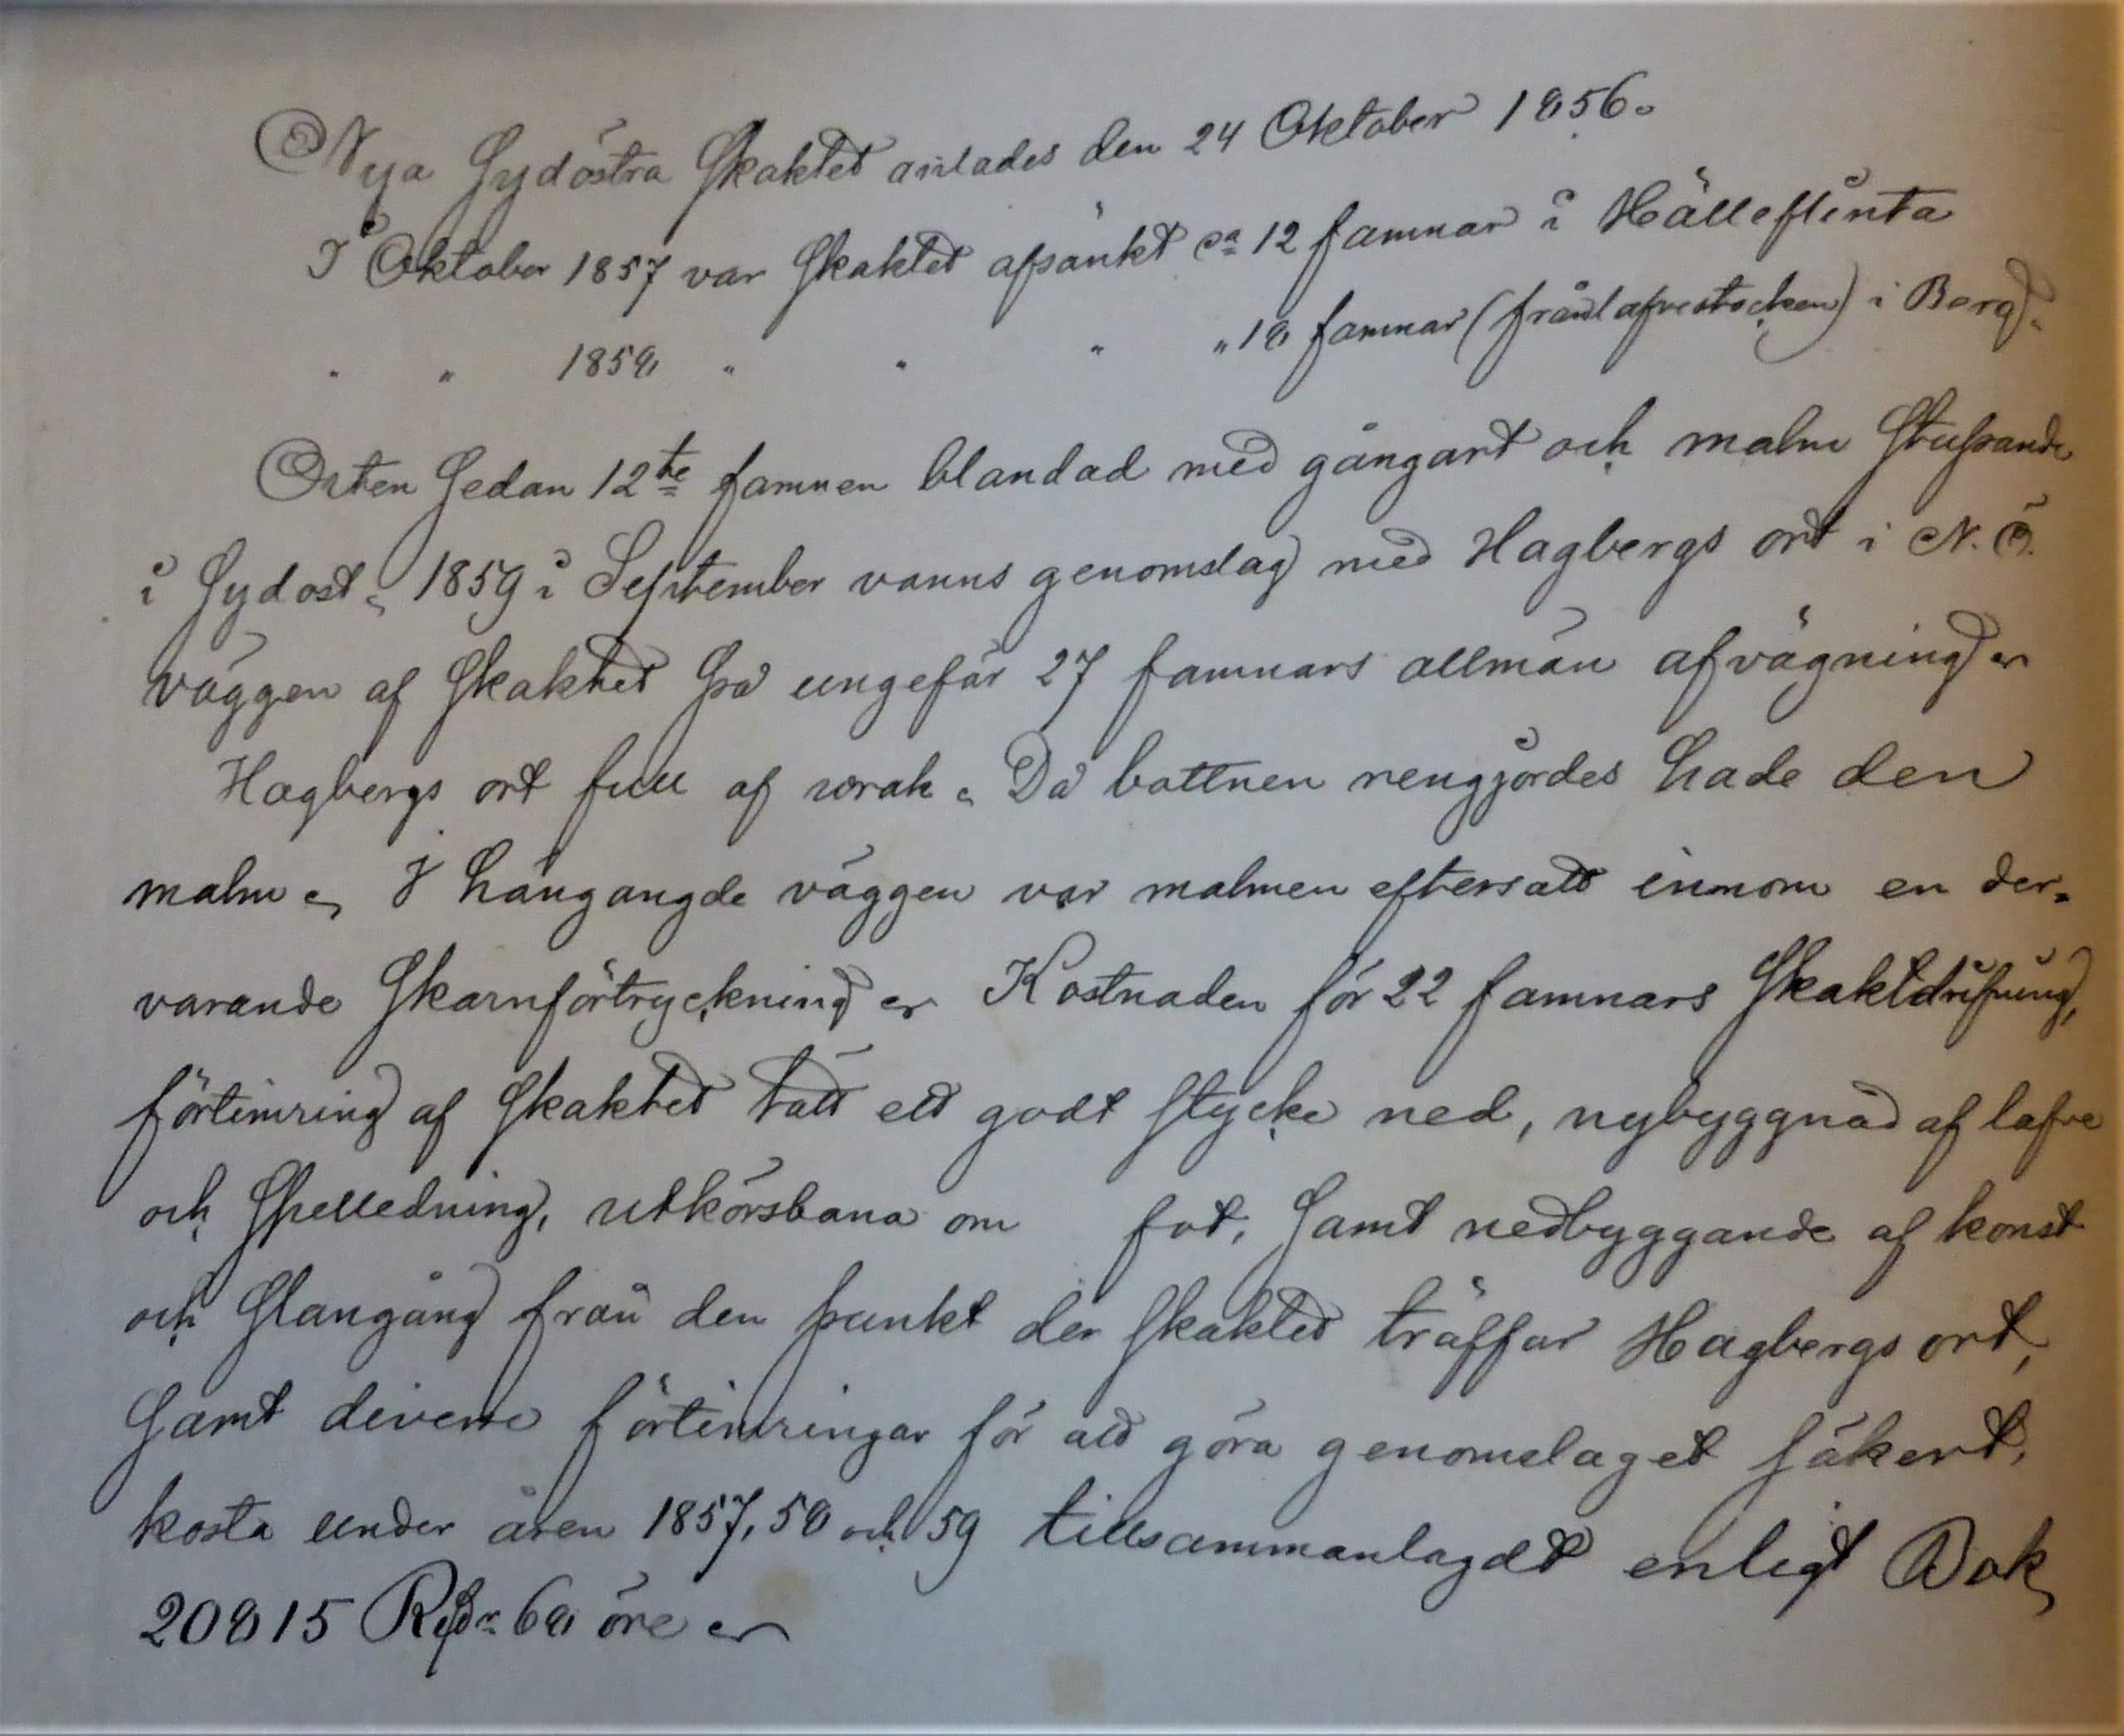 Nya Sydöstra Skaktet anlades den 24 Oktober 1856.
I Oktober 1857 var Skaktet afsänkt ca 12 famnar i Hälleflinta
" " 1858 " " " " 18 famnar (från lafvestocken) i Berg.
Orten Sedan 12te famnen blandad med gångart och malm Stupande
i Sydost. 1859 i September vanns genomslag med Hagbergs ort i N. Ö.
väggen af Skaktet på ungefär 27 famnars allmän afvägning
Hagbergs ort full af wrak. Då bottnen rengjordes hade den
malm. I hängangde väggen var malmen eftersatt innom en der=
varande Skarnförtryckning Kostnaden för 22 famnars Skaktdrifning,
förtimring af Skaktet tätt ett godt Stycke ned, nybyggnad af lafve
och Spelledning, utkörsbana om fot, Samt nedbyggande af konst
och Stångång från den punkt der Skaktet träffar Hagbergs ort,
Samt diverse förtimringar för att göra genomslaget Säkert,
kosta under åren 1857, 58 och 59 tillsammanlagdt enligt Bok
20815 Rdr 68 öre